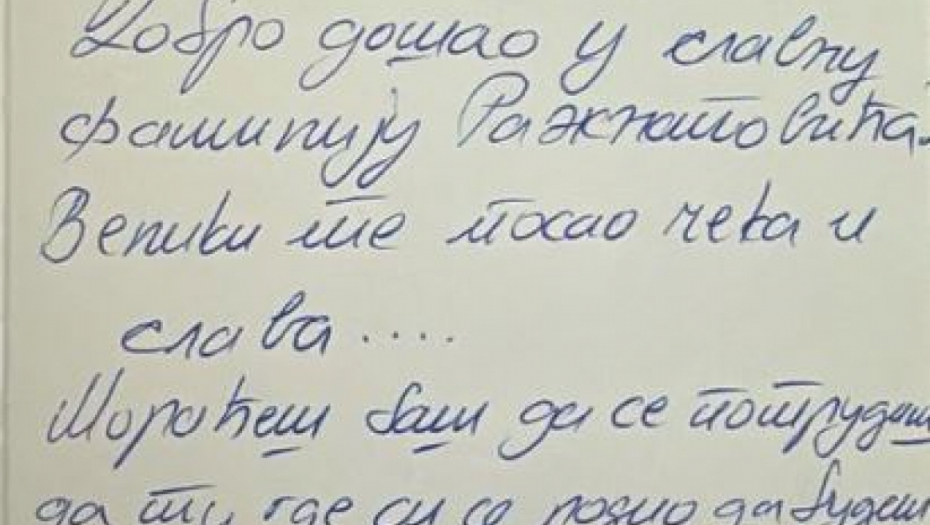 Добро дошао у славну
фамилију Ражнатовића.
Велики те посао чека и
слава ....
Мораћеш баш да се потрудиш
да ти, где си се родио да будеш